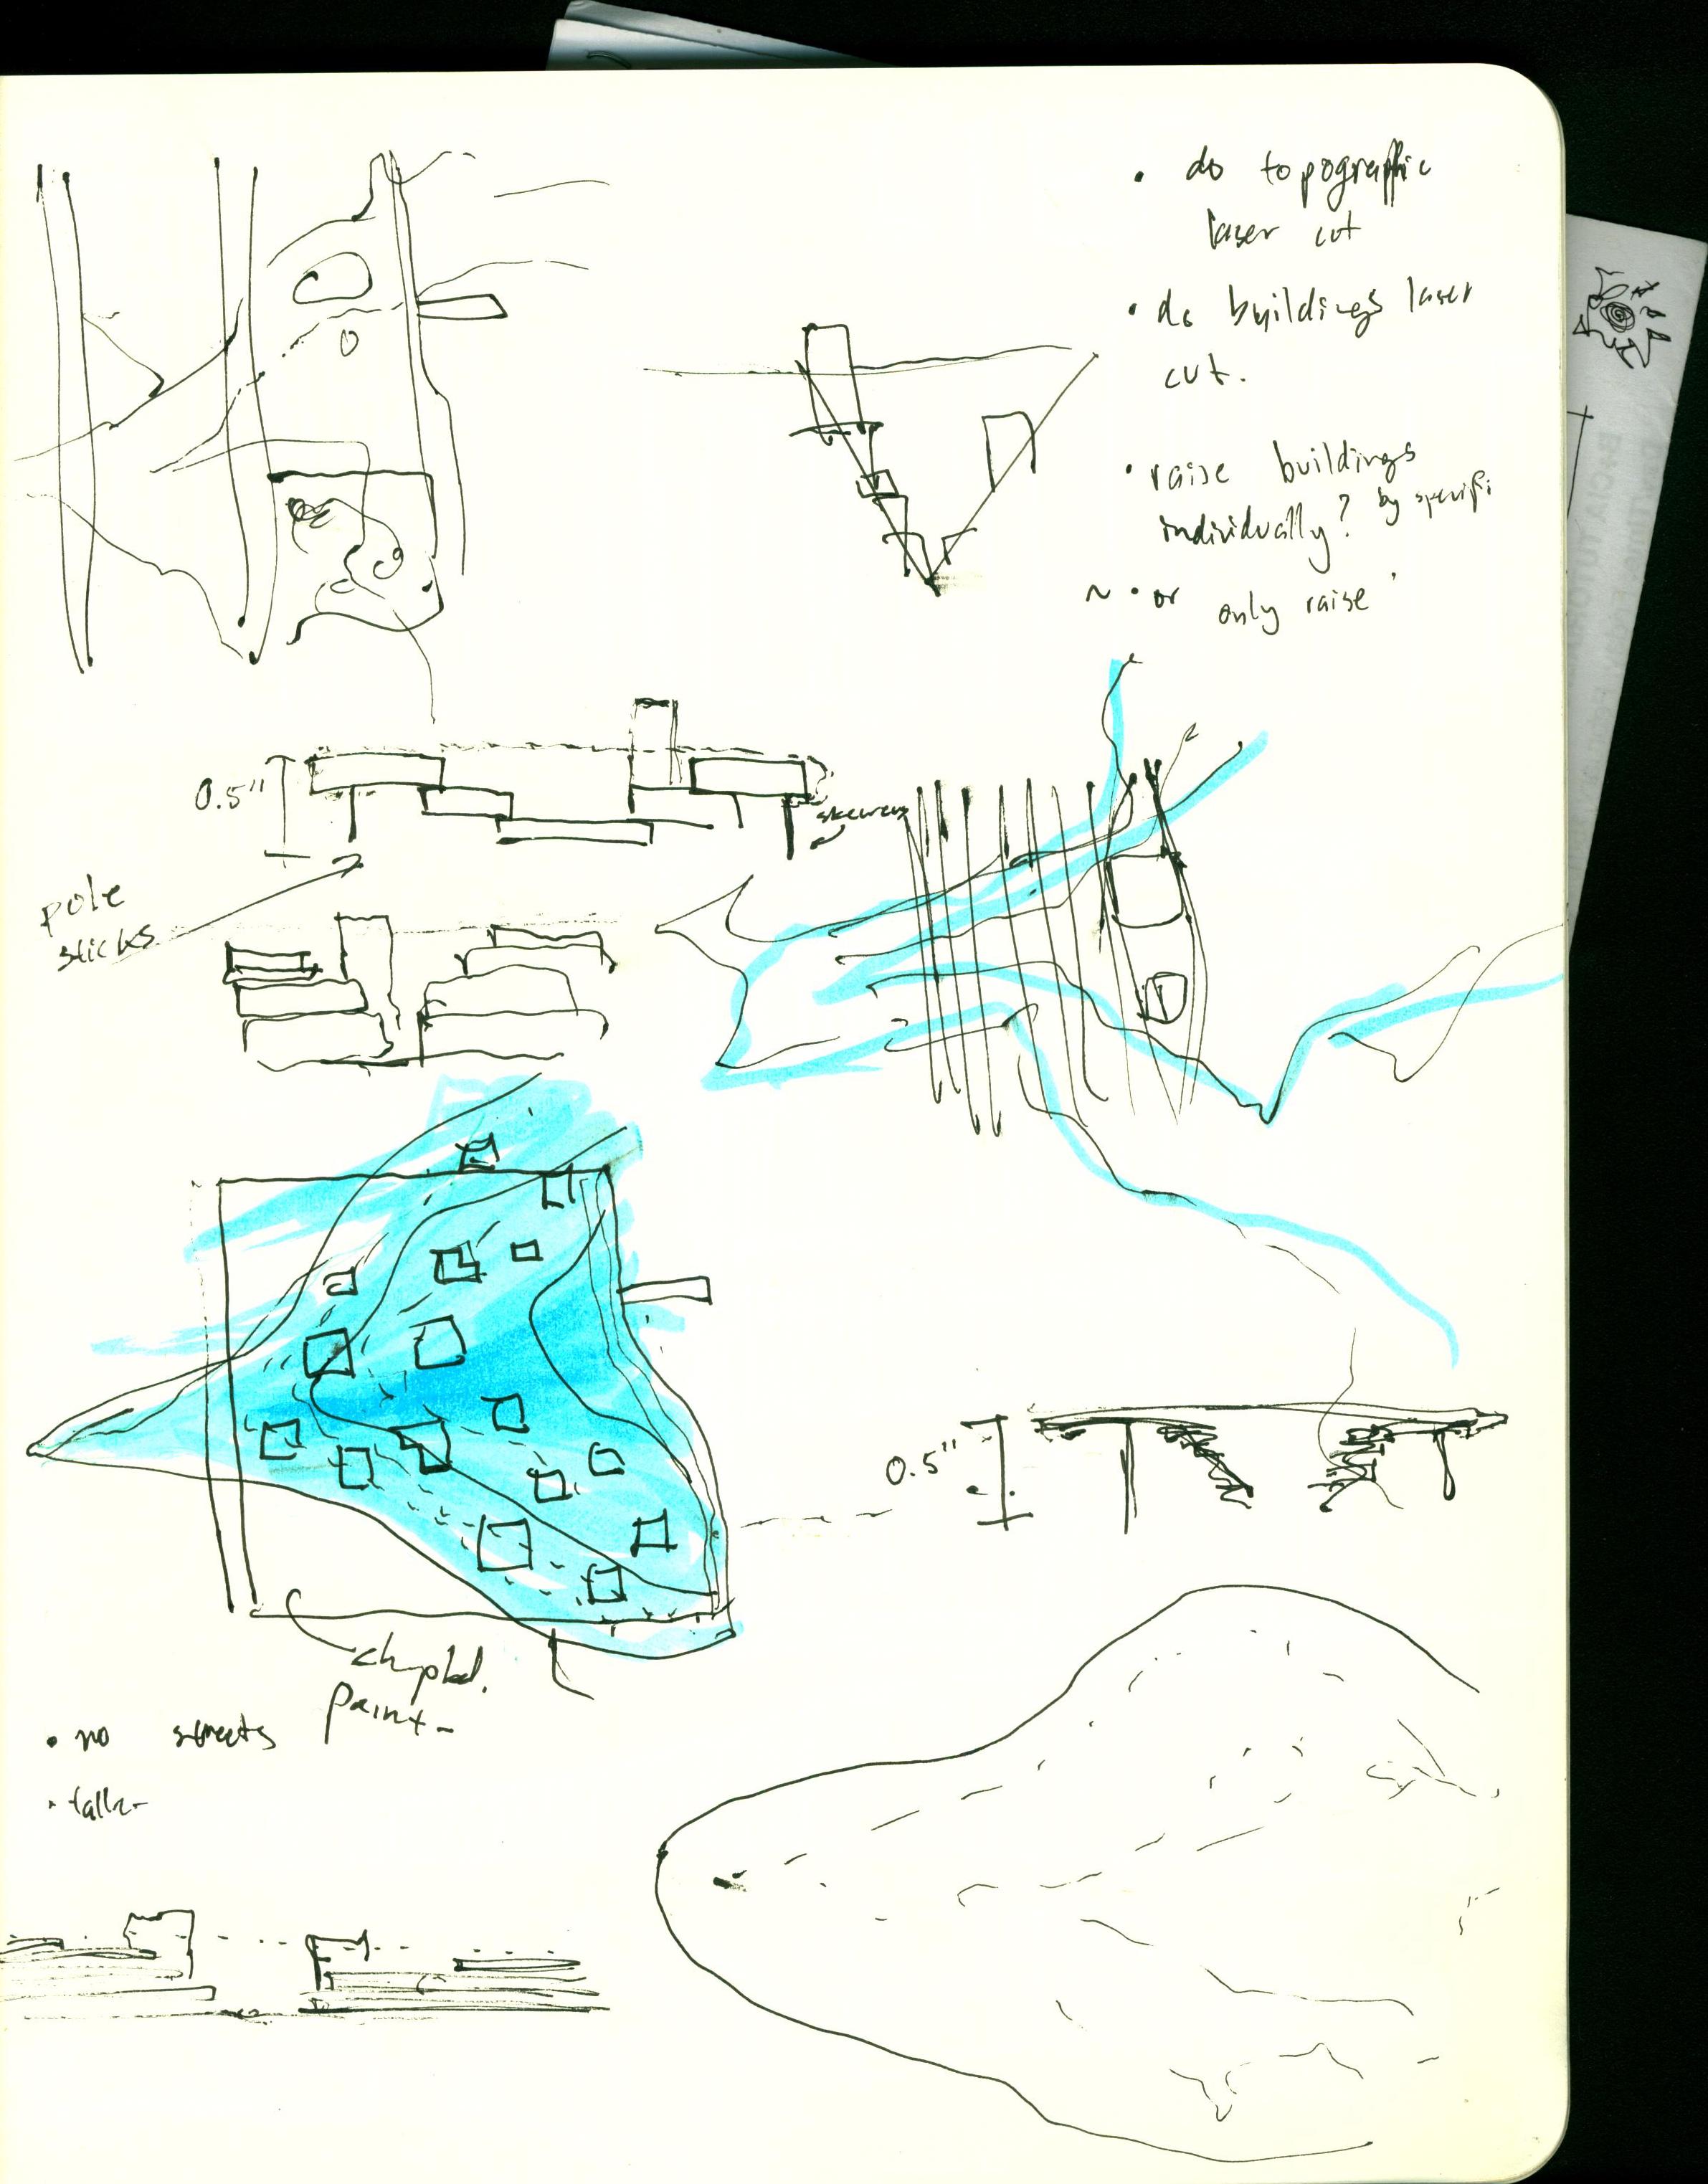 • do topograffic
laser cut
• do buildings laser
cut.
• raise buildings
individually? by specifi
~ • or only raise
0.5"
skewers
pole
sticks
0.5"
paint
• no streets